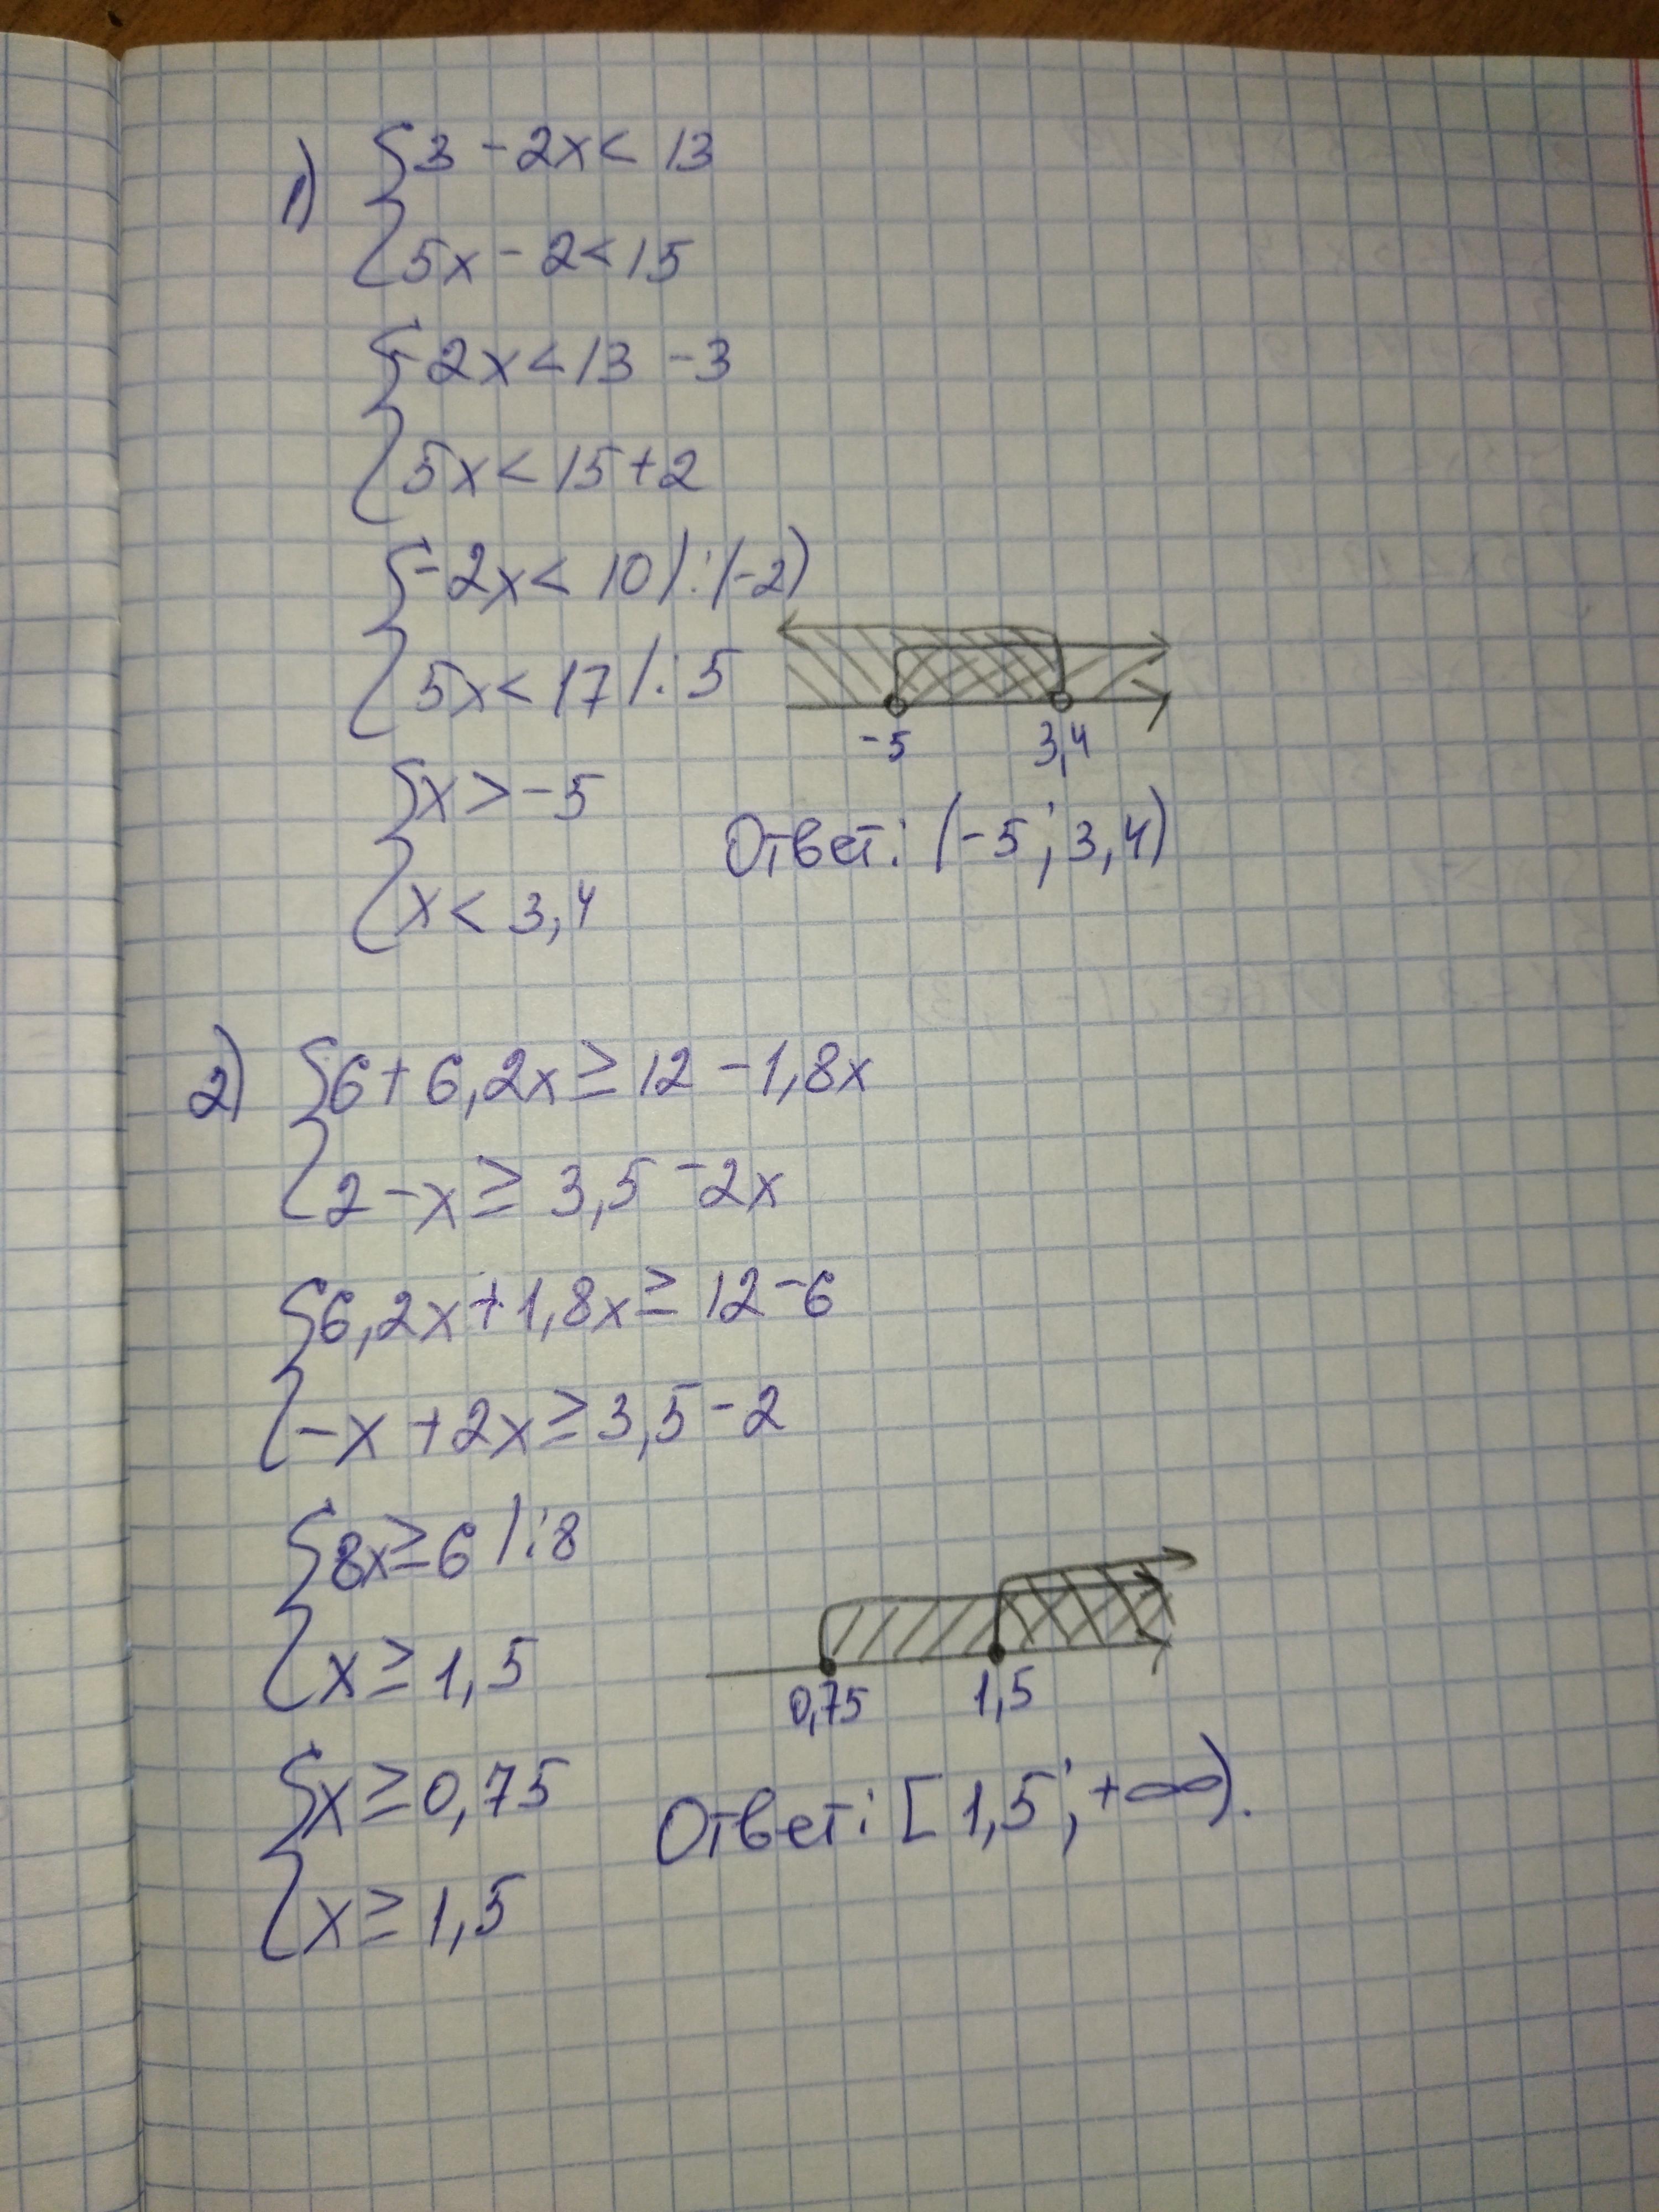 1) {3 - 2x < 13
{5x - 2 < 15
{-2x < 13 - 3
{5x < 15 + 2
{-2x < 10 |:(-2)
{5x < 17 |:5
-5 3,4
{x > -5
{x < 3,4
Ответ: (-5; 3,4)
2) {6 + 6,2x ≥ 12 - 1,8x
{2 - x ≥ 3,5 - 2x
{6,2x + 1,8x ≥ 12 - 6
{-x + 2x ≥ 3,5 - 2
{8x ≥ 6 |:8
{x ≥ 1,5
0,75 1,5
{x ≥ 0,75
{x ≥ 1,5
Ответ: [1,5; +∞).